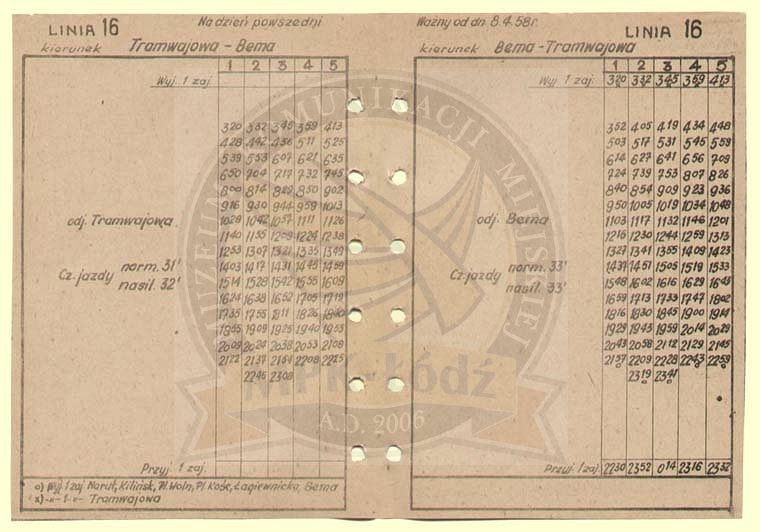 LINIA 16 Na dzień powszedni
kierunek Tramwajowa - Bema
1 2 3 4 5
Wyj. 1 zaj.
3 20 3 32 3 45 3 59 4 13
4 28 4 42 4 56 5 11 5 25
5 39 5 53 6 07 6 21 6 35
6 50 7 04 7 17 7 32 7 45
8 00 8 14 8 29 8 50 9 02
9 16 9 30 9 44 9 59 10 13
odj. Tramwajowa 10 29 10 42 10 57 11 11 11 26
11 40 11 55 12 09 12 24 12 38
12 53 13 07 13 21 13 35 13 49
Cz. jazdy norm. 31' 14 03 14 17 14 31 14 45 14 59
nasil. 32' 15 14 15 28 15 42 15 55 16 09
16 24 16 38 16 52 17 05 17 19
17 35 17 55 18 11 18 26 18 40
18 55 19 09 19 25 19 40 19 55
20 09 20 24 20 38 20 53 21 08
21 22 21 37 21 51 22 08 22 25
22 45 23 08
Przyj. 1 zaj.
o) Wyj. 1 zaj. Narut., Kilińsk., Pl. Woln., Pl. Kośc., Łagiewnicka, Bema
x) -"- 1 -"- Tramwajowa
Ważny od dn. 8.4.58 r. LINIA 16
kierunek Bema - Tramwajowa
1 2 3 4 5
Wyj. 1 zaj. 3 20 3 32 3 45 3 59 4 13
3 52 4 05 4 19 4 34 4 48
5 03 5 17 5 31 5 45 5 59
6 14 6 27 6 41 6 56 7 09
7 24 7 39 7 53 8 07 8 26
8 40 8 54 9 09 9 23 9 36
9 50 10 05 10 19 10 34 10 48
odj. Bema 11 03 11 17 11 32 11 46 12 01
12 16 12 30 12 44 12 59 13 13
13 27 13 41 13 55 14 09 14 23
Cz. jazdy norm. 33' 14 37 14 51 15 05 15 19 15 33
nasil. 33' 15 48 16 02 16 16 16 29 16 43
16 59 17 13 17 33 17 47 18 02
18 16 18 30 18 45 19 00 19 14
19 29 19 43 19 59 20 14 20 29
20 43 20 58 21 12 21 29 21 45
21 57 22 09 22 28 22 43 22 59
23 19 23 41
Przyj. 1 zaj. 22 30 23 52 0 14 23 16 23 32
MUZEUM KOMUNIKACJI MIEJSKIEJ
MPK-Łódź
A.D. 2006